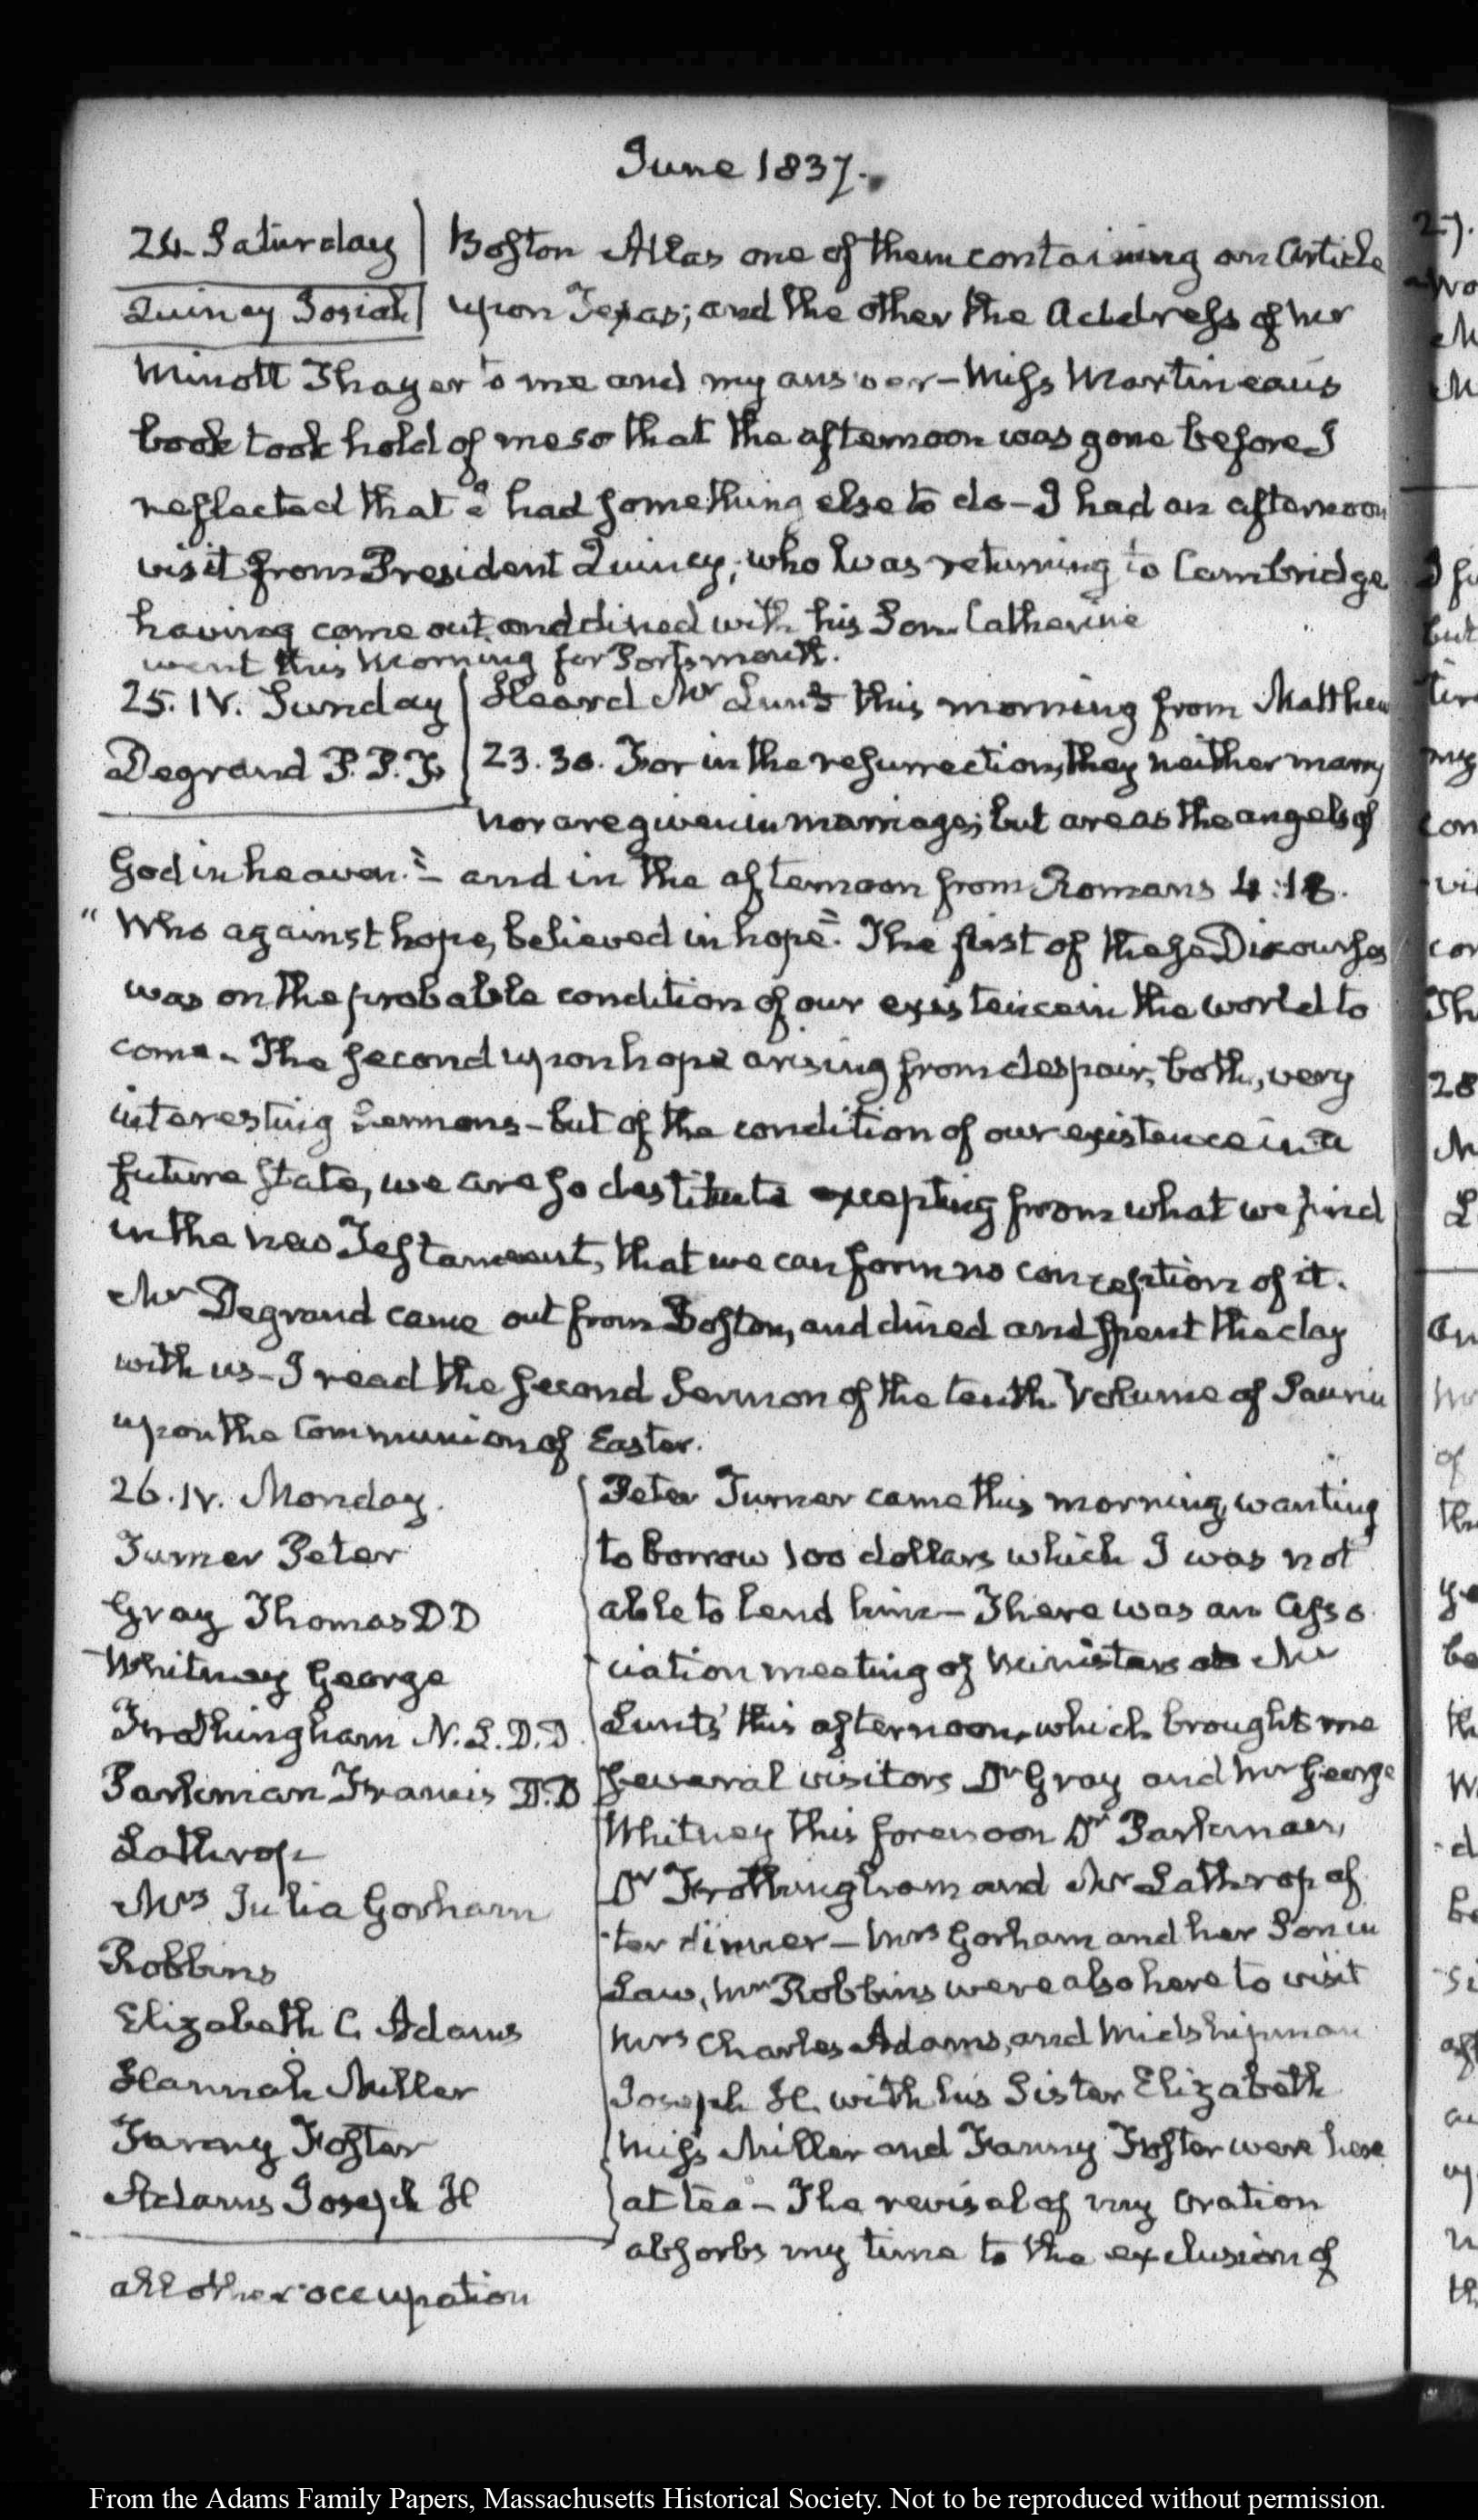 June 1837.
24. Saturday
Quincy Josiah
Boston Atlas one of them containing an Article
upon Texas; and the other the Address of Mr
Minott Thayer to me and my answer – Miss Martineau's
book took hold of me so that the afternoon was gone before I
reflected that I had something else to do – I had an afternoon
visit from President Quincy; who was returning to Cambridge
having come out and dined with his Son. Catherine
went this Morning for Portsmouth.
25. IV. Sunday
Degrand P. P. F.
Heard Mr Lunt this morning from Matthew
23.30. For in the resurrection, they neither marry
nor are given in marriage; but are as the angels of
God in heaven." – and in the afternoon from Romans 4:18.
"Who against hope, believed in hope". The first of these Discourses
was on the probable condition of our existence in the world to
come – The second upon hope arising from despair; both, very
interesting Sermons – but of the condition of our existence in a
future state, we are so destitute excepting from what we find
in the new Testament, that we can form no conception of it.
Mr Degrand came out from Boston, and dined and spent the day
with us – I read the second Sermon of the tenth Volume of Saurin
upon the Communion of Easter.
26. IV. Monday.
Turner Peter
Gray Thomas DD
Whitney George
Frothingham N. L. D.D.
Parkman Francis D.D
Lothrop
Mrs Julia Gorham
Robbins
Elizabeth C. Adams
Hannah Miller
Fanny Foster
Adams Joseph H
Peter Turner came this morning, wanting
to borrow 100 dollars which I was not
able to lend him – There was an Asso
ciation meeting of Ministers at Mr
Lunt's this afternoon, which brought me
several visitors Dr Gray and Mr George
Whitney this forenoon Dr Parkman,
Dr Frothingham and Mr Lothrop af
ter dinner – Mrs Gorham and her Son in
Law, Mr Robbins were also here to visit
Mrs Charles Adams, and Midshipman
Joseph H. with his Sister Elizabeth
Miss Miller and Fanny Foster were here
at tea – The revisal of my Oration
absorbs my time to the exclusion of
all other occupation
From the Adams Family Papers, Massachusetts Historical Society. Not to be reproduced without permission.